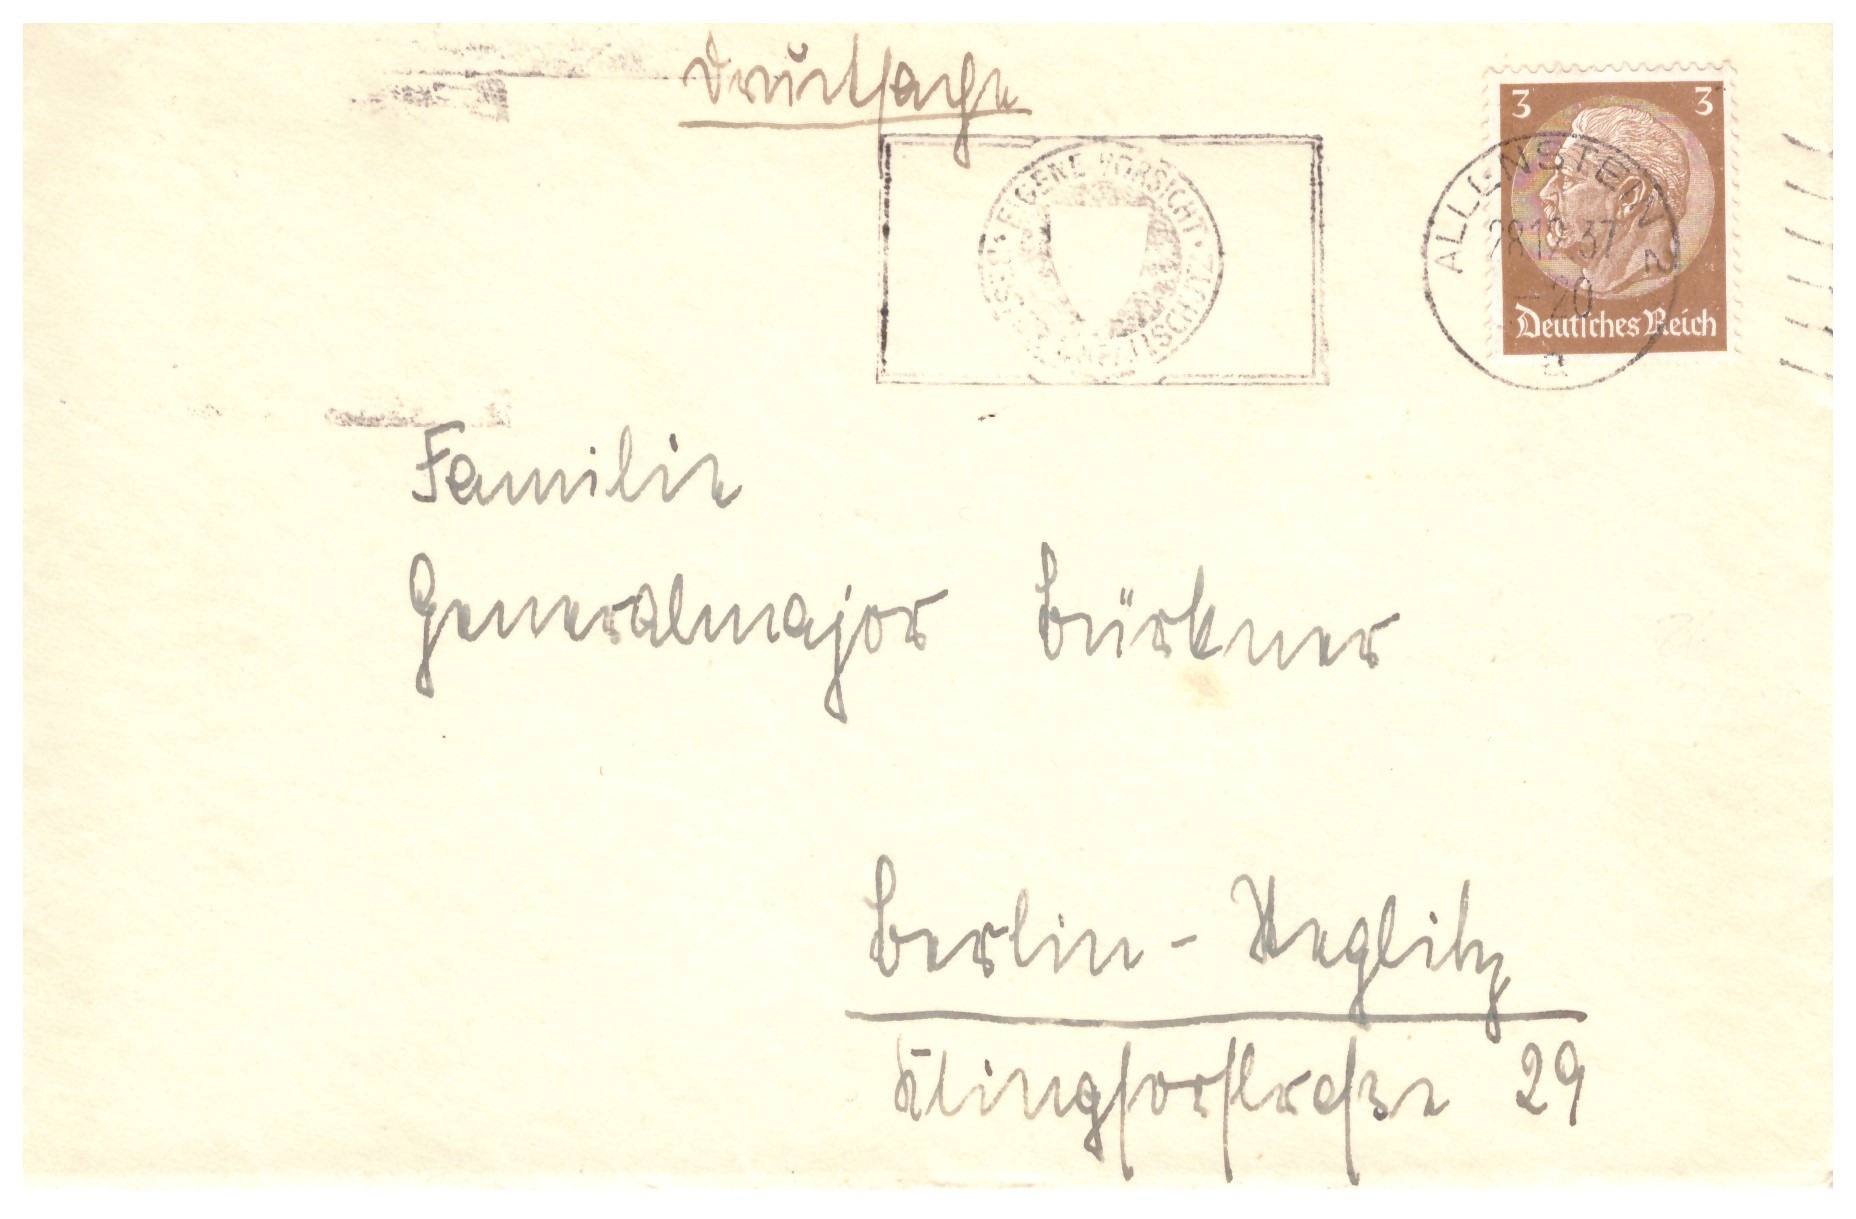 Drucksache
EIGENE VORSICHT · BESTER UNFALLSCHUTZ ·
3 3
ALLENSTEIN 2
28.12.37
– 20
a
Deutsches Reich
Familie
Generalmajor Bürkner
Berlin - Steglitz
Klingsorstraße 29